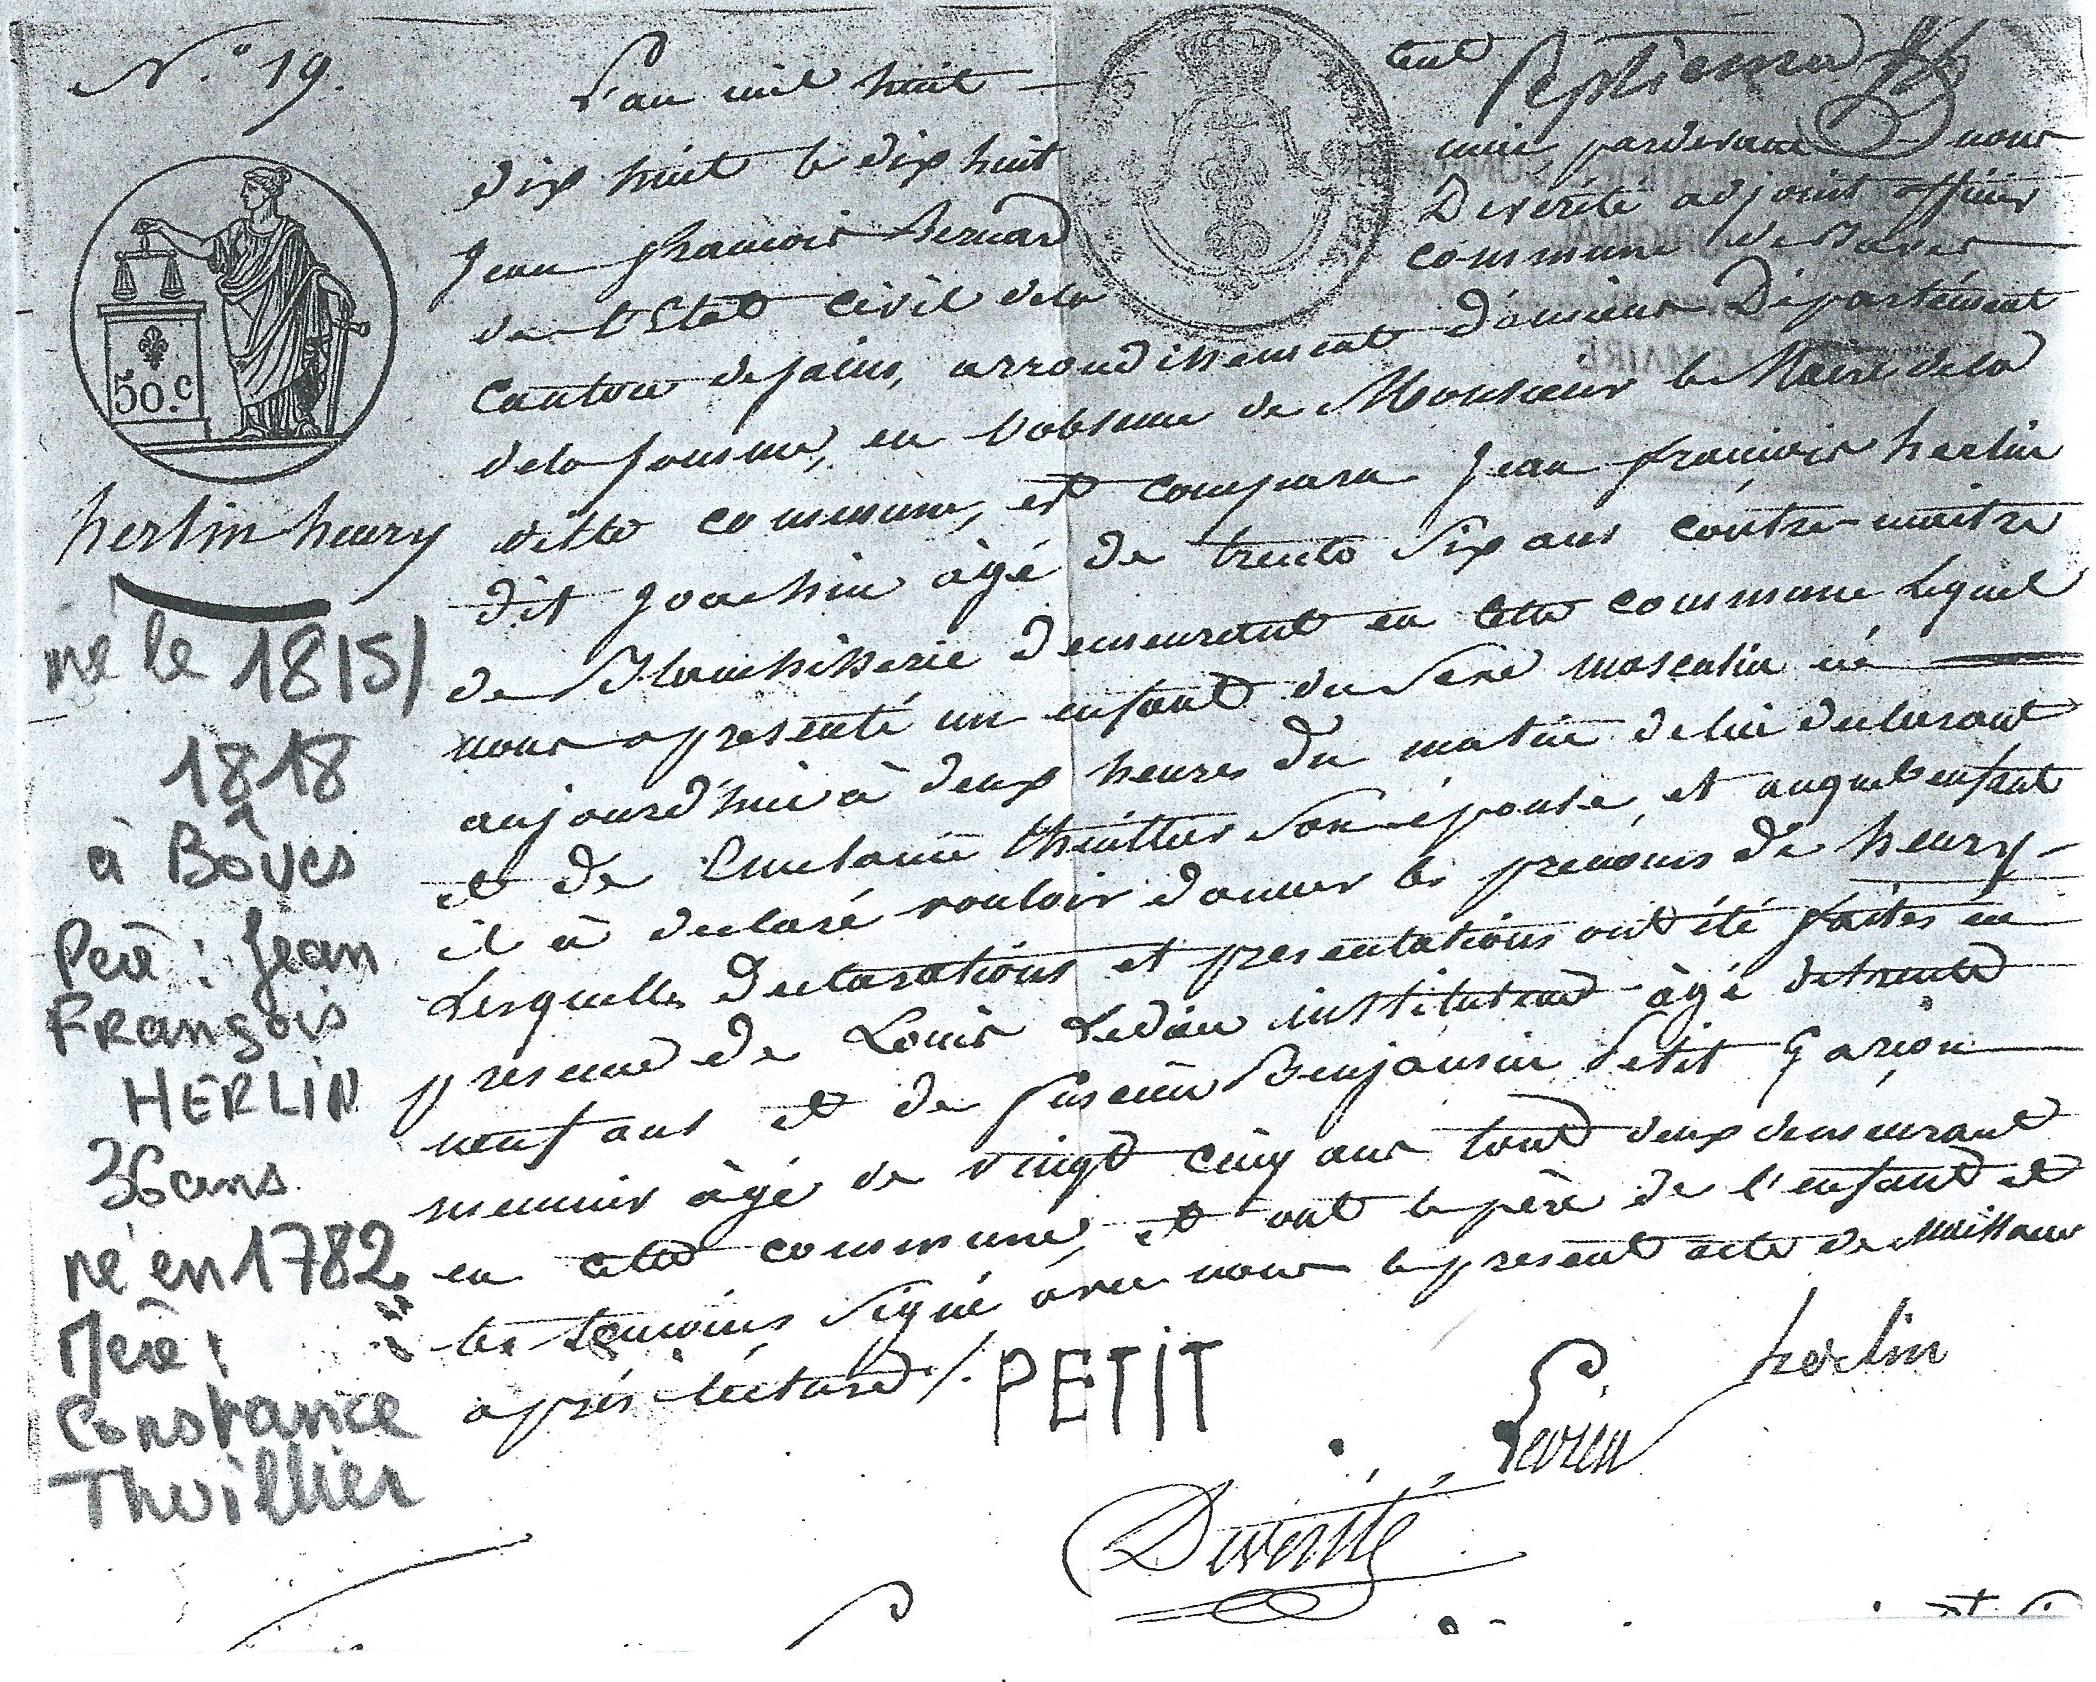 N.° 19.
L'an mil huit cent
dix huit le dix huit mai, pardevant nous
Jean françois Bernard Devérité adjoint officier
de l'Etat Civil de la commune de Boves
Canton de Sains, arrondissement d'amiens Département
de la Somme, en l'absence de Monsieur le Maire de la
ditte commune, est comparu Jean françois herlin
dit Joachin âgé de trente Six ans contre-maitre
de Blanchisserie demeurant en cette commune Lequel
nous a presenté un enfant du Sexe masculin né
aujourd'hui à deux heures du matin de lui declarant
et de Constance thuillier Son épouse, et auquel enfant
il à declaré vouloir donner les prenoms de henry
Lesquelles declarations et presentations ont été faites en
presence de Louis Ledieu instituteur âgé de trente
neuf ans et de Benjamin Petit Garçon
meunier âgé de vingt cinq ans tout deux demeurant
en cette commune, et ont le père de l'enfant et
les temoins Signé avec nous le present acte de Naissance
après lecture /.
herlin henry
né le 1815/
1818
à Boves
Père : Jean
François
HERLIN
36 ans
né en 1782
Mère :
Constance
Thuillier
50.c
PETIT
herlin
Devérité